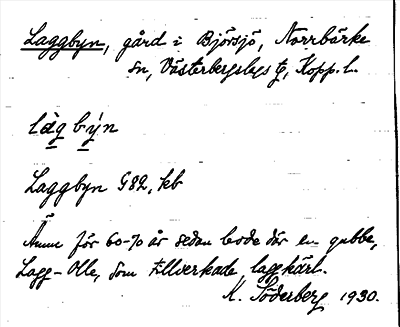 Laggbyn, gård i Björsjö, Norrbärke
sn, Västerbergslags tg, Kopp. l.
låg býn
Laggbyn G82, kb
Ännu för 60-70 år sedan bodde där en gubbe,
Lagg-Olle, som tillverkade laggkärl.
K. Söderberg 1930.